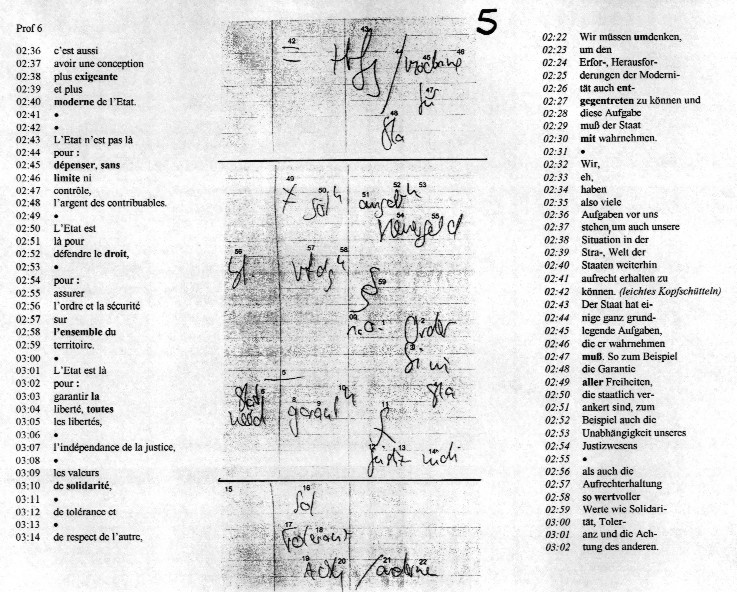 Prof 6
5
02:36 c'est aussi
02:37 avoir une conception
02:38 plus exigeante
02:39 et plus
02:40 moderne de l'Etat.
02:41 •
02:42 •
02:43 L'Etat n'est pas là
02:44 pour :
02:45 dépenser, sans
02:46 limite ni
02:47 contrôle,
02:48 l'argent des contribuables.
02:49 •
02:50 L'Etat est
02:51 là pour
02:52 défendre le droit,
02:53 •
02:54 pour :
02:55 assurer
02:56 l'ordre et la sécurité
02:57 sur
02:58 l'ensemble du
02:59 territoire.
03:00 •
03:01 L'Etat est là
03:02 pour :
03:03 garantir la
03:04 liberté, toutes
03:05 les libertés,
03:06 •
03:07 l'indépendance de la justice,
03:08 •
03:09 les valeurs
03:10 de solidarité,
03:11 •
03:12 de tolérance et
03:13 •
03:14 de respect de l'autre,
42 43 44 45 46
47
48
49 50 51 52 53
54 55
56 57 58
59
Order
garant
Justiz
15 16
Sol
17 18
19 20 21 22
02:22 Wir müssen umdenken,
02:23 um den
02:24 Erfor-, Herausfor-
02:25 derungen der Moderni-
02:26 tät auch ent-
02:27 gegentreten zu können und
02:28 diese Aufgabe
02:29 muß der Staat
02:30 mit wahrnehmen.
02:31 •
02:32 Wir,
02:33 eh,
02:34 haben
02:35 also viele
02:36 Aufgaben vor uns
02:37 stehen,um auch unsere
02:38 Situation in der
02:39 Stra-, Welt der
02:40 Staaten weiterhin
02:41 aufrecht erhalten zu
02:42 können. (leichtes Kopfschütteln)
02:43 Der Staat hat ei-
02:44 nige ganz grund-
02:45 legende Aufgaben,
02:46 die er wahrnehmen
02:47 muß. So zum Beispiel
02:48 die Garantie
02:49 aller Freiheiten,
02:50 die staatlich ver-
02:51 ankert sind, zum
02:52 Beispiel auch die
02:53 Unabhängigkeit unseres
02:54 Justizwesens
02:55 •
02:56 als auch die
02:57 Aufrechterhaltung
02:58 so wertvoller
02:59 Werte wie Solidari-
03:00 tät, Toler-
03:01 anz und die Ach-
03:02 tung des anderen.